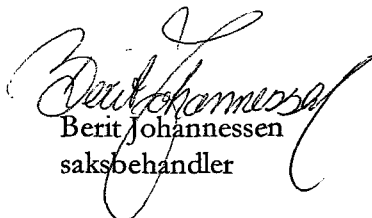 Berit Johannessen
Berit Johannessen
saksbehandler